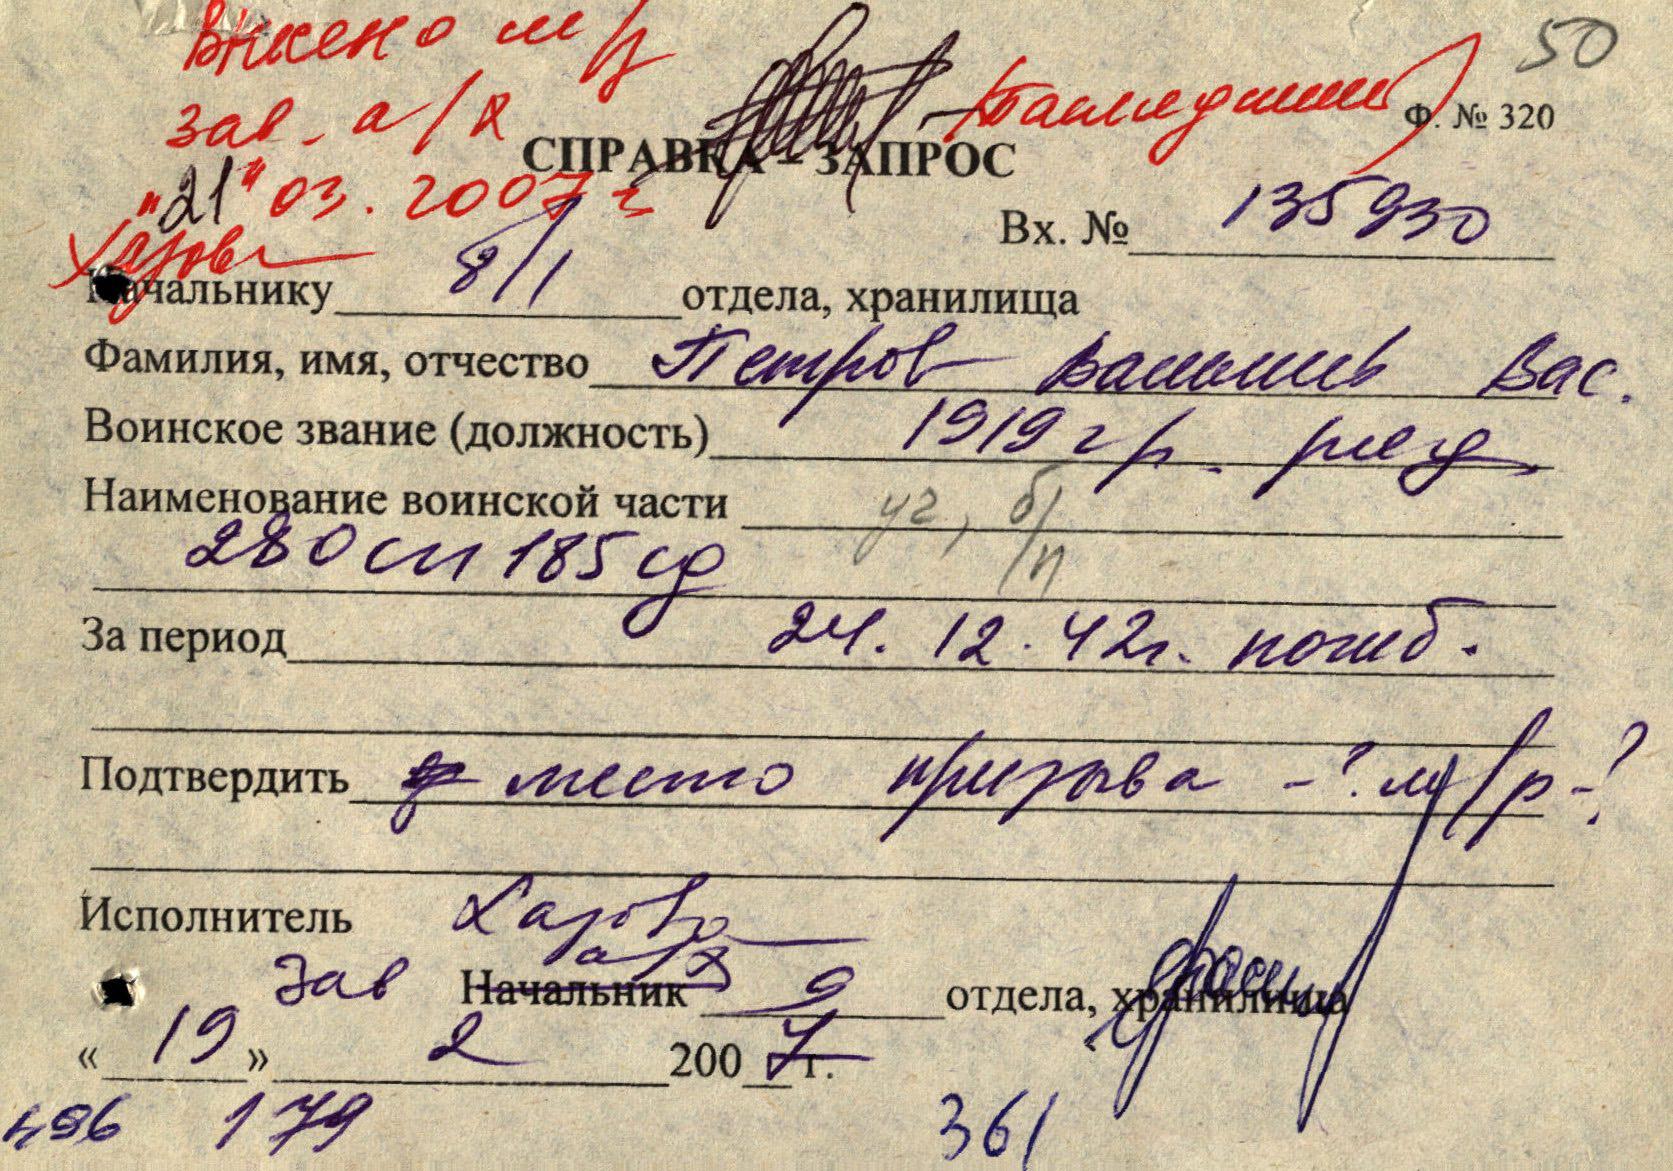 50
внесено м/р
зав. а/х
Ф. № 320
СПРАВКА – ЗАПРОС
"21" 03. 2007 г
Вх. № 135930
Хазова
Начальнику 8/1 отдела, хранилища
Фамилия, имя, отчество Петров Василий Вас.
Воинское звание (должность) 1919 г р. ряд
Наименование воинской части уг, б/п
280 сп 185 сд
За период 24. 12. 42г. погиб.
Подтвердить место призыва - ? м/р - ?
Исполнитель Хазова
Зав а/х Начальник 9 отдела, хранилища
« 19 » 2 200 7 г.
496 179 361